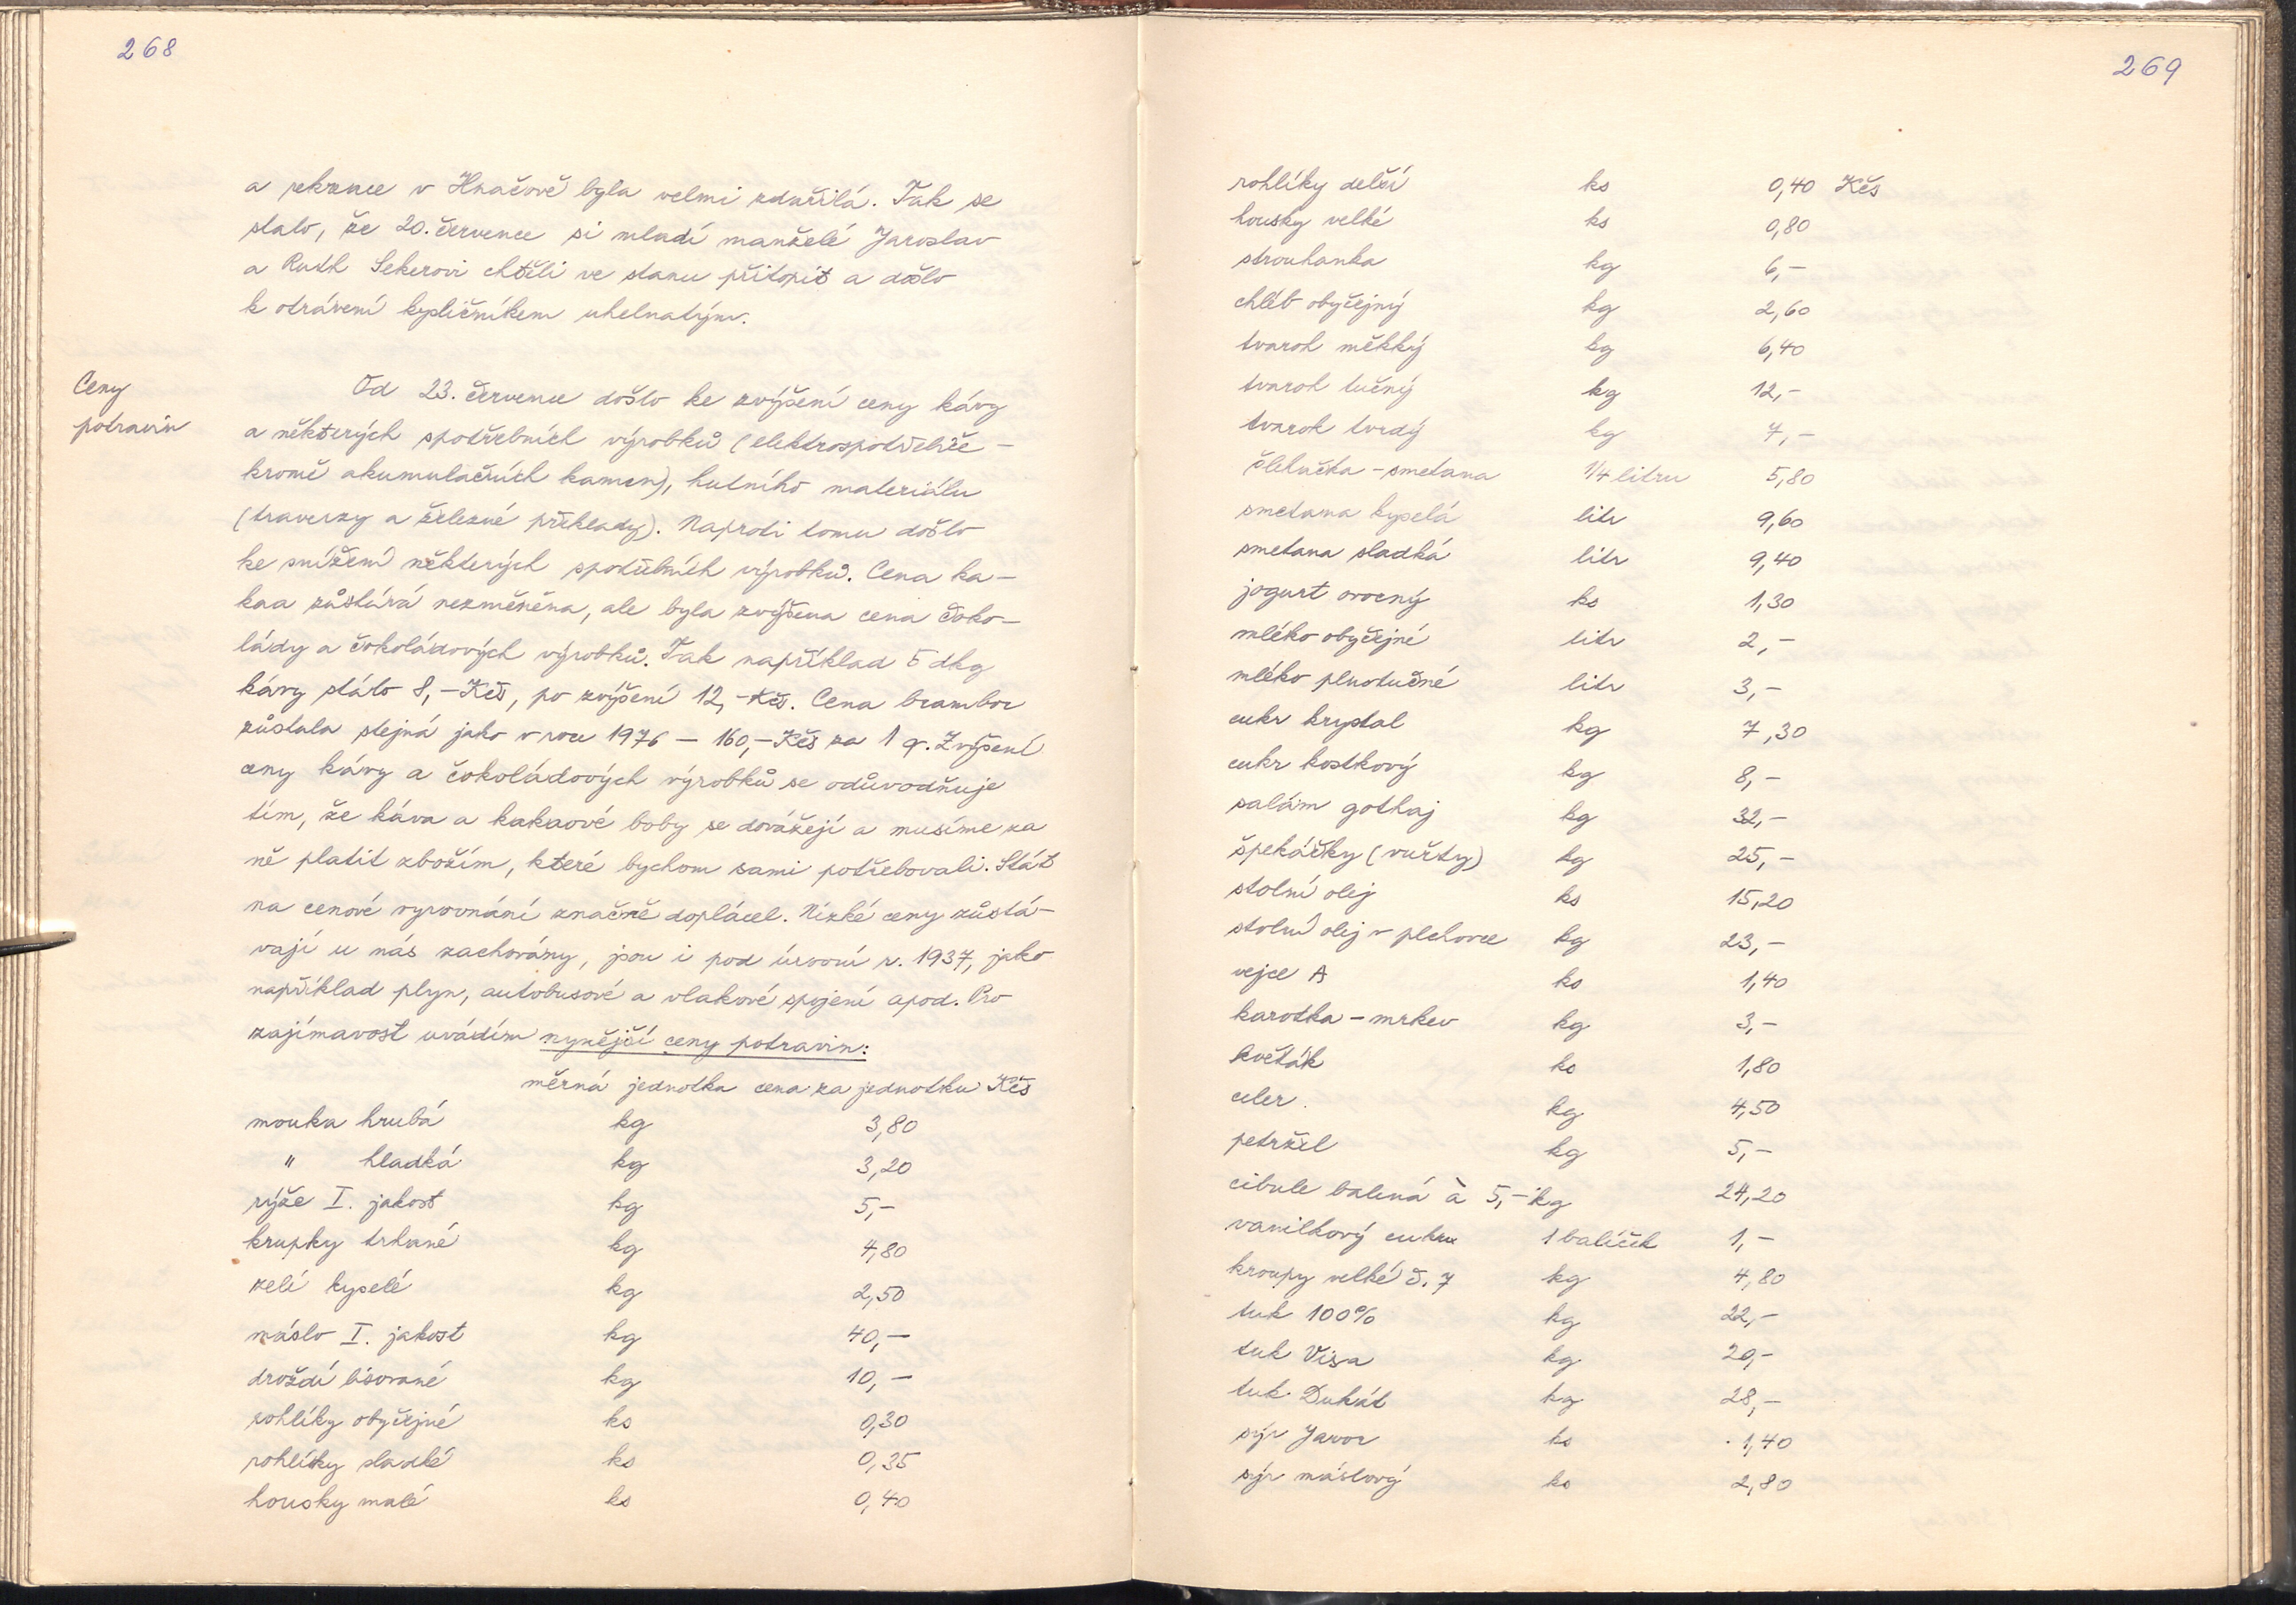 268
a rekreace v Hnačově byla velmi zdařilá. Tak se
stalo, že 20. července si mladí manželé Jaroslav
a Ruth Sekerovi chtěli ve stanu přitopit a došlo
k otrávení kysličníkem uhelnatým.
Ceny
potravin
Od 23. července došlo ke zvýšení ceny kávy
a některých spotřebních výrobků (elektrospotřebiče –
kromě akumulačních kamen), hutního materiálu
(traverzy a železné překlady). Naproti tomu došlo
ke snížení některých spotřebních výrobků. Cena ka-
kaa zůstává nezměněna, ale byla zvýšena cena čoko-
lády a čokoládových výrobků. Tak například 5 dkg
kávy stálo 8,- Kčs, po zvýšení 12,- Kčs. Cena brambor
zůstala stejná jako v roce 1976 – 160,- Kčs za 1 q. Zvýšení
ceny kávy a čokoládových výrobků se odůvodňuje
tím, že káva a kakaové boby se dovážejí a musíme za
ně platit zbožím, které bychom sami potřebovali. Stát
na cenové vyrovnání značně doplácel. Nízké ceny zůstá-
vají u nás zachovány, jsou i pod úrovní r. 1937, jako
například plyn, autobusové a vlakové spojení apod. Pro
zajímavost uvádím nynější ceny potravin:
měrná jednotka cena za jednotku Kčs
mouka hrubá kg 3,80
" hladká kg 3,20
rýže I. jakost kg 5,-
krupky trhané kg 4,80
zelí kyselé kg 2,50
máslo I. jakost kg 40,-
droždí lisované kg 10,-
rohlíky obyčejné ks 0,30
rohlíky sladké ks 0,35
housky malé ks 0,40
269
rohlíky delší ks 0,40 Kčs
housky velké ks 0,80
strouhanka kg 6,-
chléb obyčejný kg 2,60
tvaroh měkký kg 6,40
tvaroh tučný kg 12,-
tvaroh tvrdý kg 7,-
šlehačka - smetana 1/4 litru 5,80
smetana kyselá litr 9,60
smetana sladká litr 9,40
jogurt ovocný ks 1,30
mléko obyčejné litr 2,-
mléko plnotučné litr 3,-
cukr krystal kg 7,30
cukr kostkový kg 8,-
salám gothaj kg 32,-
špekáčky (vuřty) kg 25,-
stolní olej ks 15,20
stolní olej v plechovce kg 23,-
vejce A ks 1,40
karotka - mrkev kg 3,-
květák ks 1,80
celer kg 4,50
petržel kg 5,-
cibule balená à 5,- kg 24,20
vanilkový cukr 1 balíček 1,-
kroupy velké č. 7 kg 4,80
tuk 100% kg 22,-
tuk Visa kg 20,-
tuk Dukát kg 28,-
sýr Javor ks 1,40
sýr máslový ks 2,80